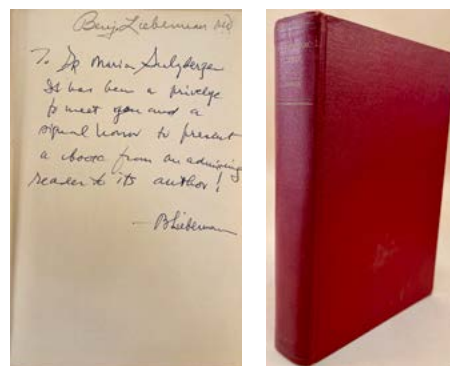 Benj. Lieberman MD
To Dr Marion Sulzberger
It has been a privelge
to meet you and a
signal honor to present
a book from an admiring
reader to its author!
— B Lieberman